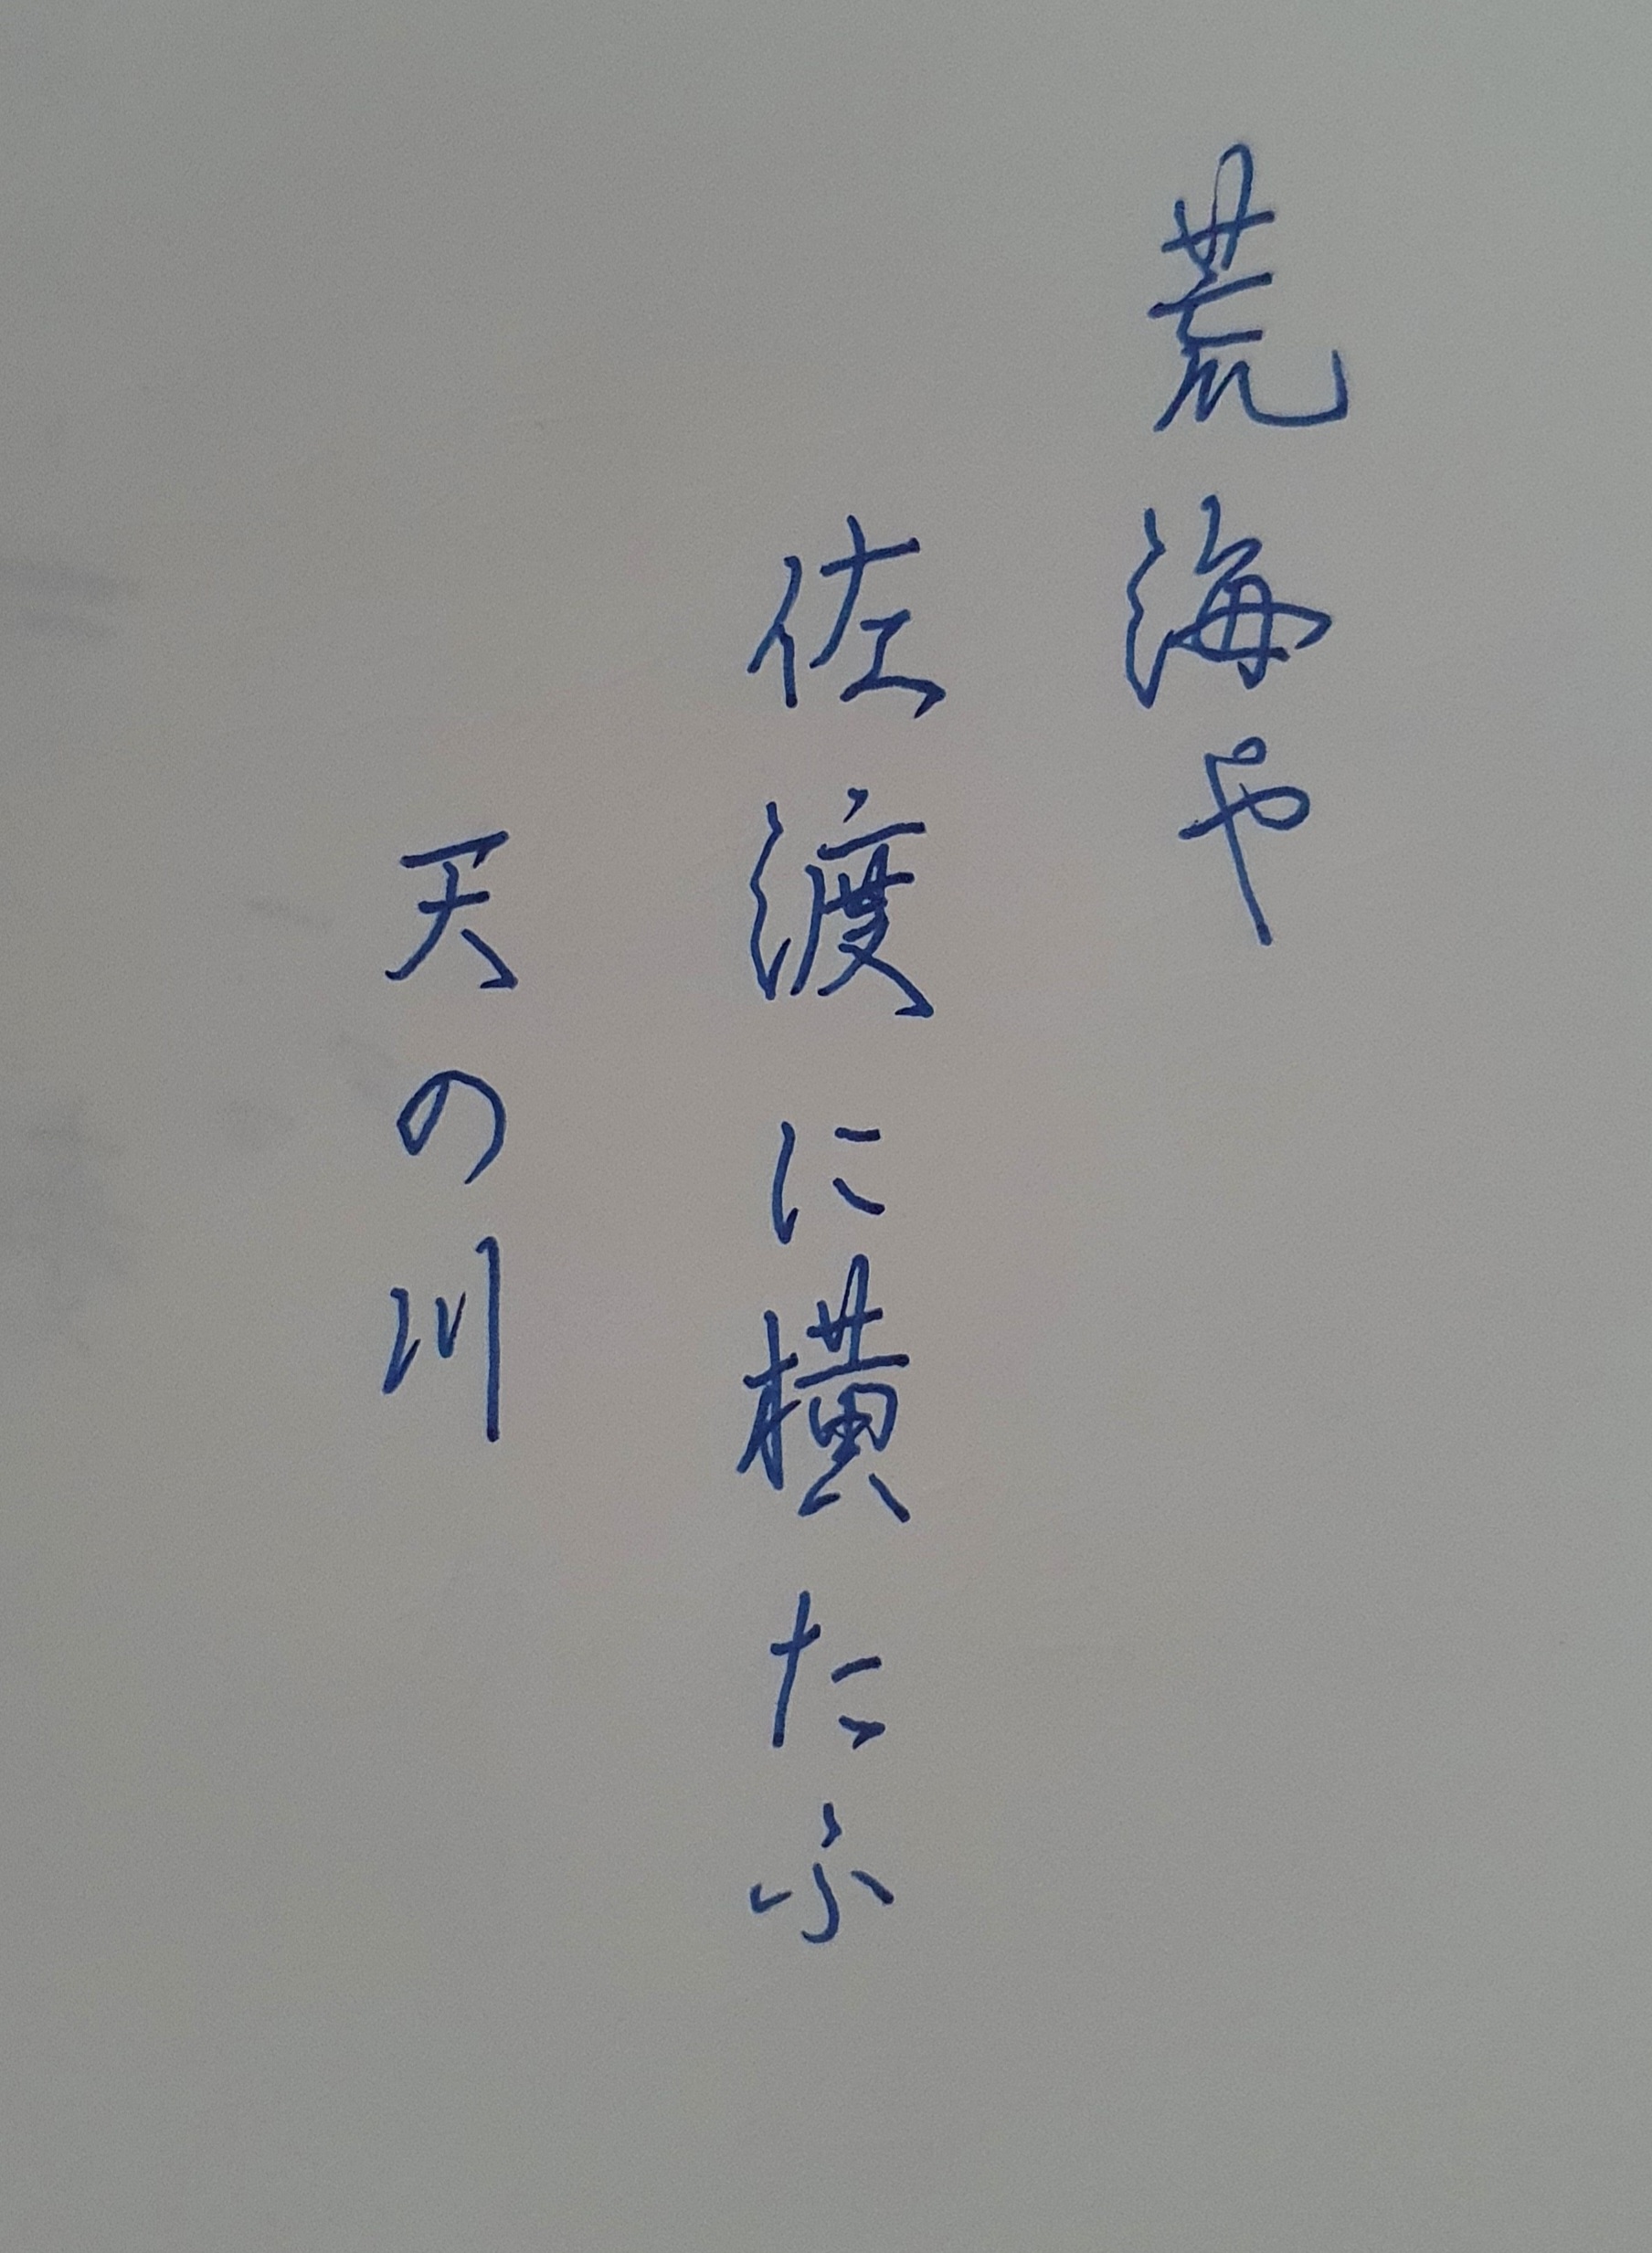 荒海や
佐渡に横たふ
天の川